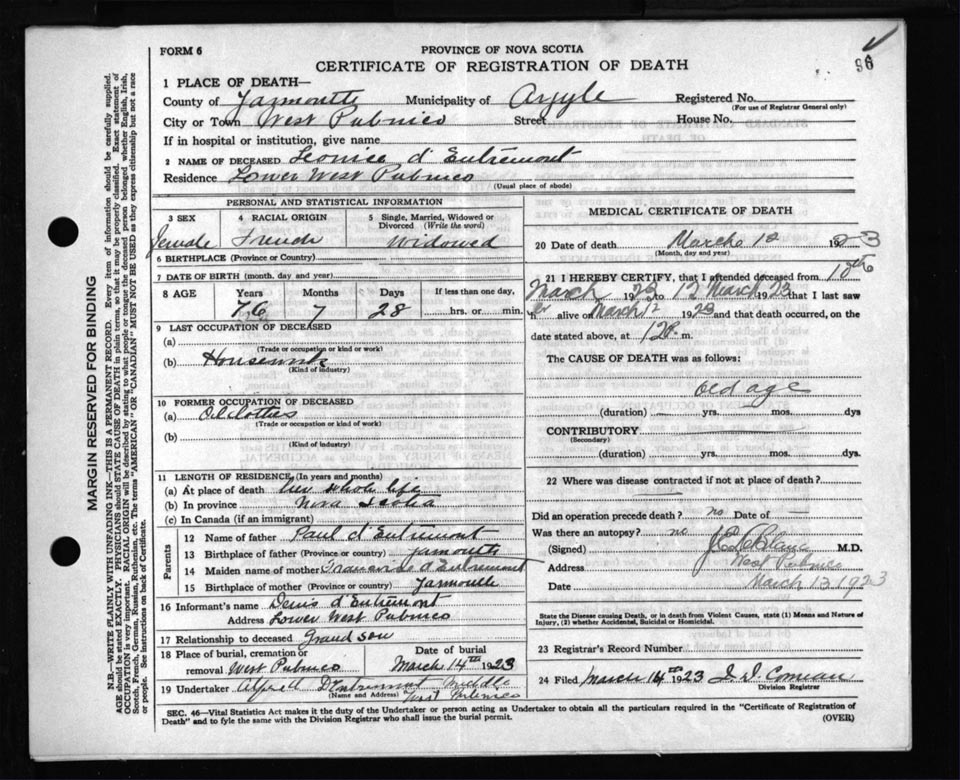 FORM 6
PROVINCE OF NOVA SCOTIA
96
CERTIFICATE OF REGISTRATION OF DEATH
1 PLACE OF DEATH—
County of Yarmouth Municipality of Argyle Registered No.
(For use of Registrar General only)
City or Town West Pubnico Street House No.
If in hospital or institution, give name
2 NAME OF DECEASED Leonice d'Entremont
Residence Lower West Pubnico
(Usual place of abode)
PERSONAL AND STATISTICAL INFORMATION
3 SEX 4 RACIAL ORIGIN 5 Single, Married, Widowed or Divorced (Write the word)
Female French Widowed
6 BIRTHPLACE (Province or Country)
7 DATE OF BIRTH (month, day and year)
8 AGE Years Months Days If less than one day,
76 7 28 hrs. or min.
9 LAST OCCUPATION OF DECEASED
(a)
(Trade or occupation or kind or work)
(b) Housework
(Kind of industry)
10 FORMER OCCUPATION OF DECEASED
(a)
(Trade or occupation or kind of work)
(b)
(Kind of industry)
11 LENGTH OF RESIDENCE (In years and months)
(a) At place of death her whole life
(b) In province Nova Scotia
(c) In Canada (if an immigrant)
Parents
12 Name of father Paul d'Entremont
13 Birthplace of father (Province or country) Yarmouth
14 Maiden name of mother d'Entremont
15 Birthplace of mother (Province or country) Yarmouth
16 Informant's name Denis d'Entremont
Address Lower West Pubnico
17 Relationship to deceased Grand son
18 Place of burial, cremation or removal West Pubnico
Date of burial
March 14th 1923
19 Undertaker Alfred D'Entremont Middle
(Name and Address) West Pubnico
MEDICAL CERTIFICATE OF DEATH
20 Date of death March 12 1923
(Month, day and year)
21 I HEREBY CERTIFY, that I attended deceased from 10th
March 1923 to 12 March 1923 that I last saw
her alive on March 12 1923 and that death occurred, on the
date stated above, at m.
The CAUSE OF DEATH was as follows:
old age
(duration) yrs. mos. dys
CONTRIBUTORY
(Secondary)
(duration) yrs. mos. dys.
22 Where was disease contracted if not at place of death?
Did an operation precede death? no Date of —
Was there an autopsy? no
(Signed) LeBlanc M.D.
Address West Pubnico
Date March 13, 1923
State the Disease causing Death, or in death from Violent Causes, state (1) Means and Nature of
Injury, (2) whether Accidental, Suicidal or Homicidal.
23 Registrar's Record Number
24 Filed March 14th 1923 Comeau
Division Registrar
SEC. 46—Vital Statistics Act makes it the duty of the Undertaker or person acting as Undertaker to obtain all the particulars required in the "Certificate of Registration of
Death" and to fyle the same with the Division Registrar who shall issue the burial permit.
(OVER)
MARGIN RESERVED FOR BINDING
N.B.—WRITE PLAINLY WITH UNFADING INK—THIS IS A PERMANENT RECORD. Every item of information should be carefully supplied.
AGE should be stated EXACTLY. PHYSICIANS should STATE CAUSE OF DEATH in plain terms, so that it may be properly classified. Exact statement of
OCCUPATION is very important. RACIAL ORIGIN will be described by stating to what people or tongue the deceased person belonged whether English, Irish,
Scotch, French, German, Russian, Ruthenian, etc. The terms "AMERICAN" OR "CANADIAN" MUST NOT BE USED as they express citizenship but not a race
or people. See instructions on back of Certificate.